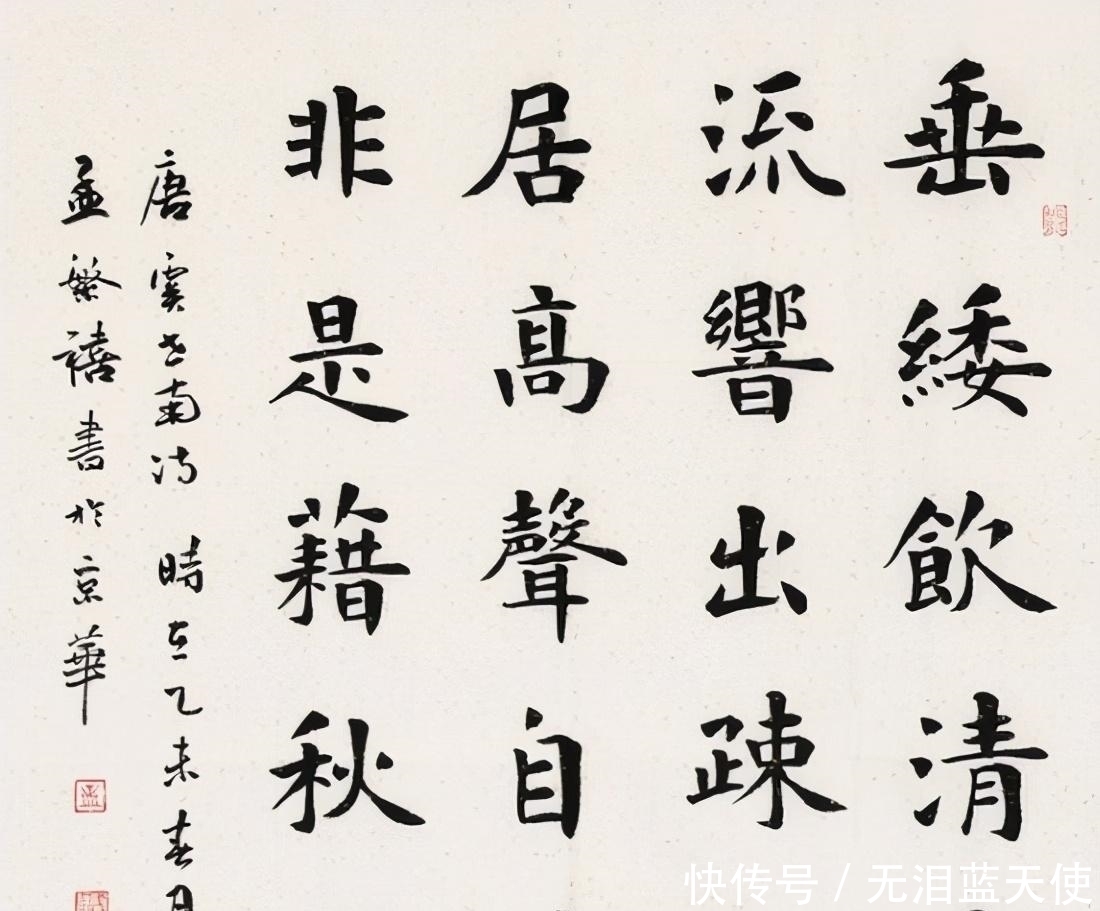 垂綏飲清
流響出疎
居高聲自
非是藉秋
唐虞世南诗 時在乙未春月
孟繁禧書於京華
快传号 / 无泪蓝天使